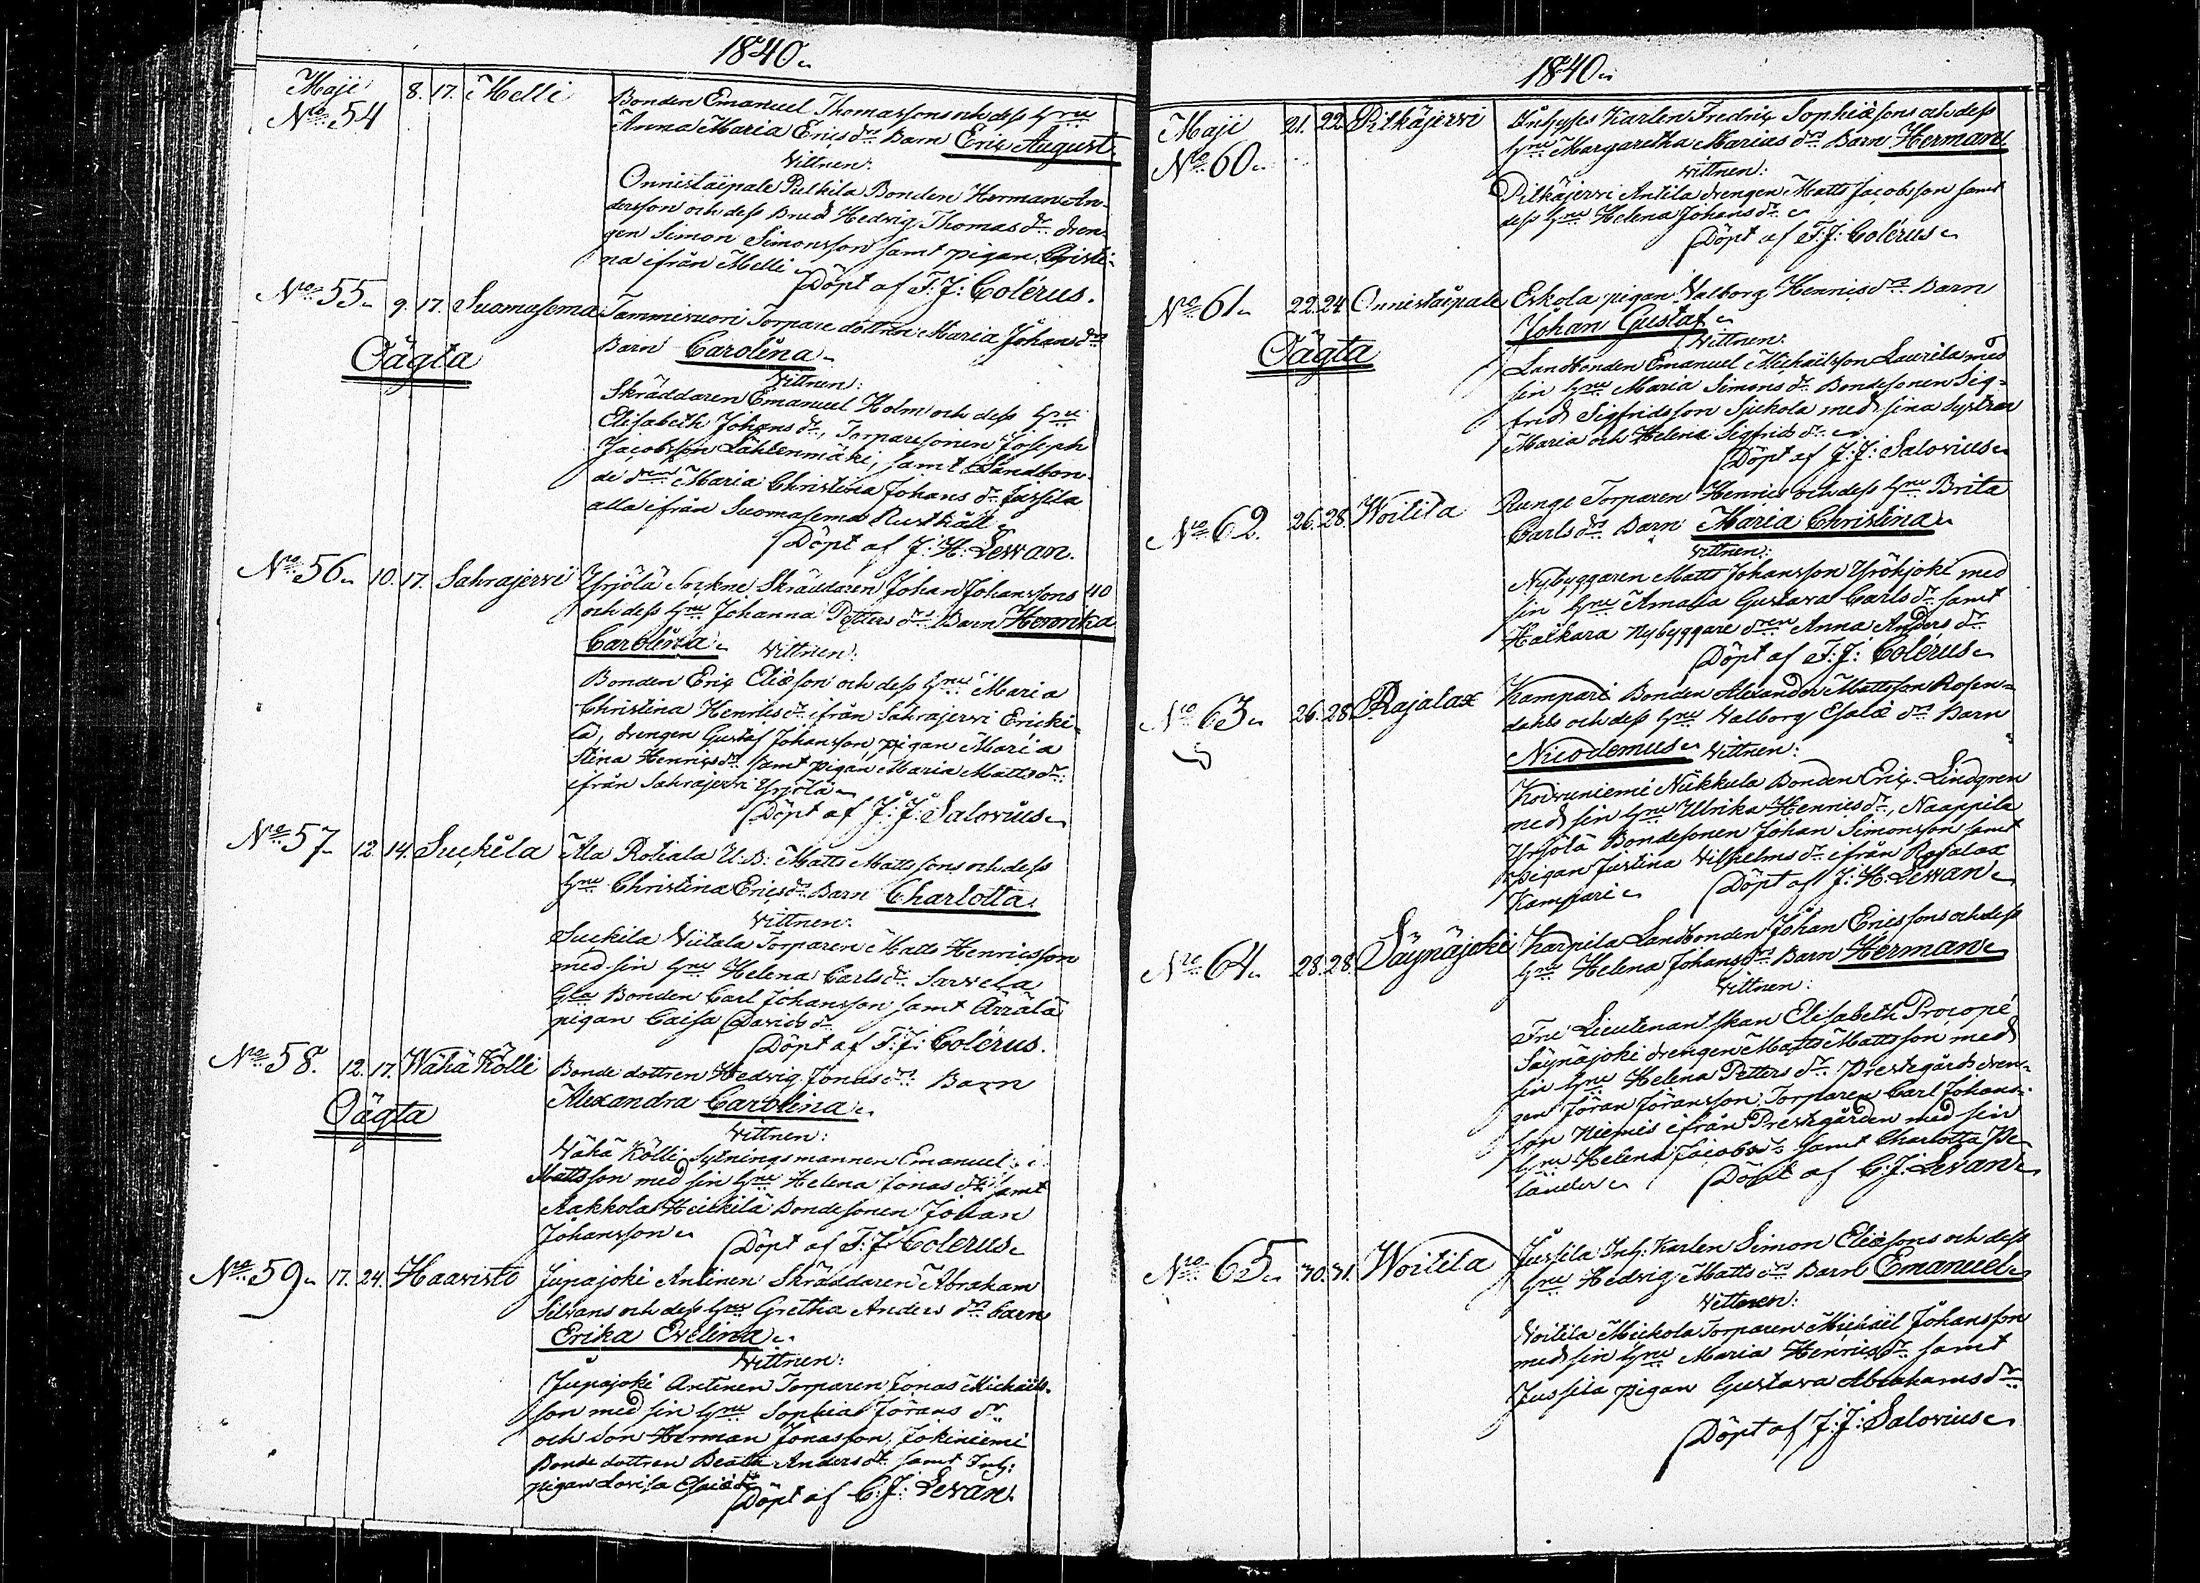 1840.
Maji 8. 17. Melli Bonden Emanuel Thomassons och dess Hru
No 54 Anna Maria Erics drs Barn Eric August
Vittnen:
Onnistaipale Pulkila Bonden Herman An-
dersson och dess Hedvig Thomas dr. dren-
gen Simon Simonsson samt pigan Christi-
na ifrån Melli
Döpt af F: J: Colérus.
No 55. 9. 17. Suomasema Tammivuori Torpare dottran Maria Johans drs
Oägta Barn Carolina
Vittnen:
Skräddaren Emanuel Holm och dess Hru
Elisabeth Johans dr, Torparesonen Joseph
Jacobsson Lähtenmäki, samt Landbon-
de dren Maria Christina Johans dr Jussila
alla ifrån Suomasema Rusthåll
Döpt af J: H: Levvan.
No 56. 10. 17. Sahrajervi Yrjölä Sockne Skräddaren Johan Johanssons 40
och dess Hru Johanna Petters drs Barn Henrika
Carolina. Vittnen:
Bonden Eric Eliæson och dess Hru Maria
Christina Henrics dr. ifrån Sahrajervi Ericki-
lä, drengen Gustaf Johansson pigan Maria
Stina Henrics dr. samt pigan Maria Matts dr.
ifrån Sahrajervi Yrjölä
Döpt af J: J: Salovius.
No 57. 12. 14. Suckila Ala Rotiala U: B: Matts Mattssons och dess
Hru Christina Erics drs Barn Charlotta.
Vittnen:
Suckila Viitala Torparen Matts Henricsson
med sin Hru Helena Carls dr. Sarvela
Bonden Carl Johansson samt Ärrälä
pigan Caisa Davids dr
Döpt af F: J: Colérus.
No 58. 12. 17. Wähä Kölli Bonde dottren Hedvig Jonas drs Barn
Oägta Alexandra Carolina.
Vittnen:
Wähä Kölli Sytningsmannen Emanuel
Mattsson med sin Hru Helena Jonas dr. samt
Rakkola Heickilä Bondesonen Johan
Johansson. Döpt af F: J: Colérus.
No 59. 17. 24. Haavisto Jupajoki Antinen Skräddaren Abraham
Selvans och dess Hru Gretha Anders drs Barn
Erika Evelina.
Vittnen:
Jupajoki Antinen Torparen Jonas Michaëls-
son med sin Hru Sophia Jörans dr.
och son Herman Jonasson, Jokiniemi
Bonde dottren Beatha Anders dr. samt Inh:
pigan Lovisa Esaiæ dr.
Döpt af C: J: Levan.
1840.
Maji 21. 22. Pitkäjervi Inhyses Karlen Fredric Sophiæsons och dess
No 60. Hru Margaretha Marias drs Barn Herman.
Vittnen:
Pitkäjervi Antila drengen Matts Jacobsson samt
dess Hru Helena Johans dr.
Döpt af F: J: Colérus.
No 61. 22. 24. Onnistaipale Eskola pigan Valborg Henrics drs Barn
Oägta Johan Gustaf.
Vittnen:
Landbonden Emanuel Michaëlsson Laurila med
sin Hru Maria Simons dr. Bondesonen Sig-
frid Sigfridsson Sjukola med sina Systrar
Maria och Helena Sigfrids dr.
Döpt af J: J: Salovius.
No 62. 26. 28. Woitila Runge Torparen Henrics och dess Hru Brita
Carls drs Barn Maria Christina.
Vittnen:
Nybyggaren Matts Johansson Yröhjoki med
sin Hru Amalia Gustava Carls dr. samt
Haikara Nybyggare dren Anna Anders dr.
Döpt af F: J: Colérus.
No 63. 26. 28. Rajalax Kampari Bonden Alexander Mattsson Rosen-
dahls och dess Hru Valborg Esaiæ drs Barn
Nicodemus. Vittnen:
Koivuniemi Nukkula Bonden Eric Lindqren
med sin Hru Ulrika Henrics dr., Naappila
Yrjölä Bondesonen Johan Simonsson samt
pigan Justina Vilhelms dr. ifrån Rajalax
Kampari. Döpt af J: H: Levvan.
No 64. 28. 28. Säynäjoki Karpila Landbonden Johan Ericssons och dess
Hru Helena Johans drs Barn Herman.
Vittnen:
Fru Lieutenantskan Elisabeth Procopé
Säynäjoki drengen Matts Mattsson med
sin Hru Helena Petters dr. Prestgårds dren-
gen Jöran Jöransson, Torparen Carl Johans-
son Niemis ifrån Prestgården med sin
Hru Helena Jacobs dr. samt Charlotta Pe-
länder. Döpt af C: J: Levan.
No 65. 30. 31. Woitila Jussila Inh: Karlen Simon Eliæsons och dess
Hru Hedvig Matts drs Barn Emanuel.
Vittnen:
Voitila Mickola Torparen Michaël Johansson
med sin Hru Maria Henrics dr. samt
Jussila pigan Gustava Abrahams dr.
Döpt af J: J: Salovius.